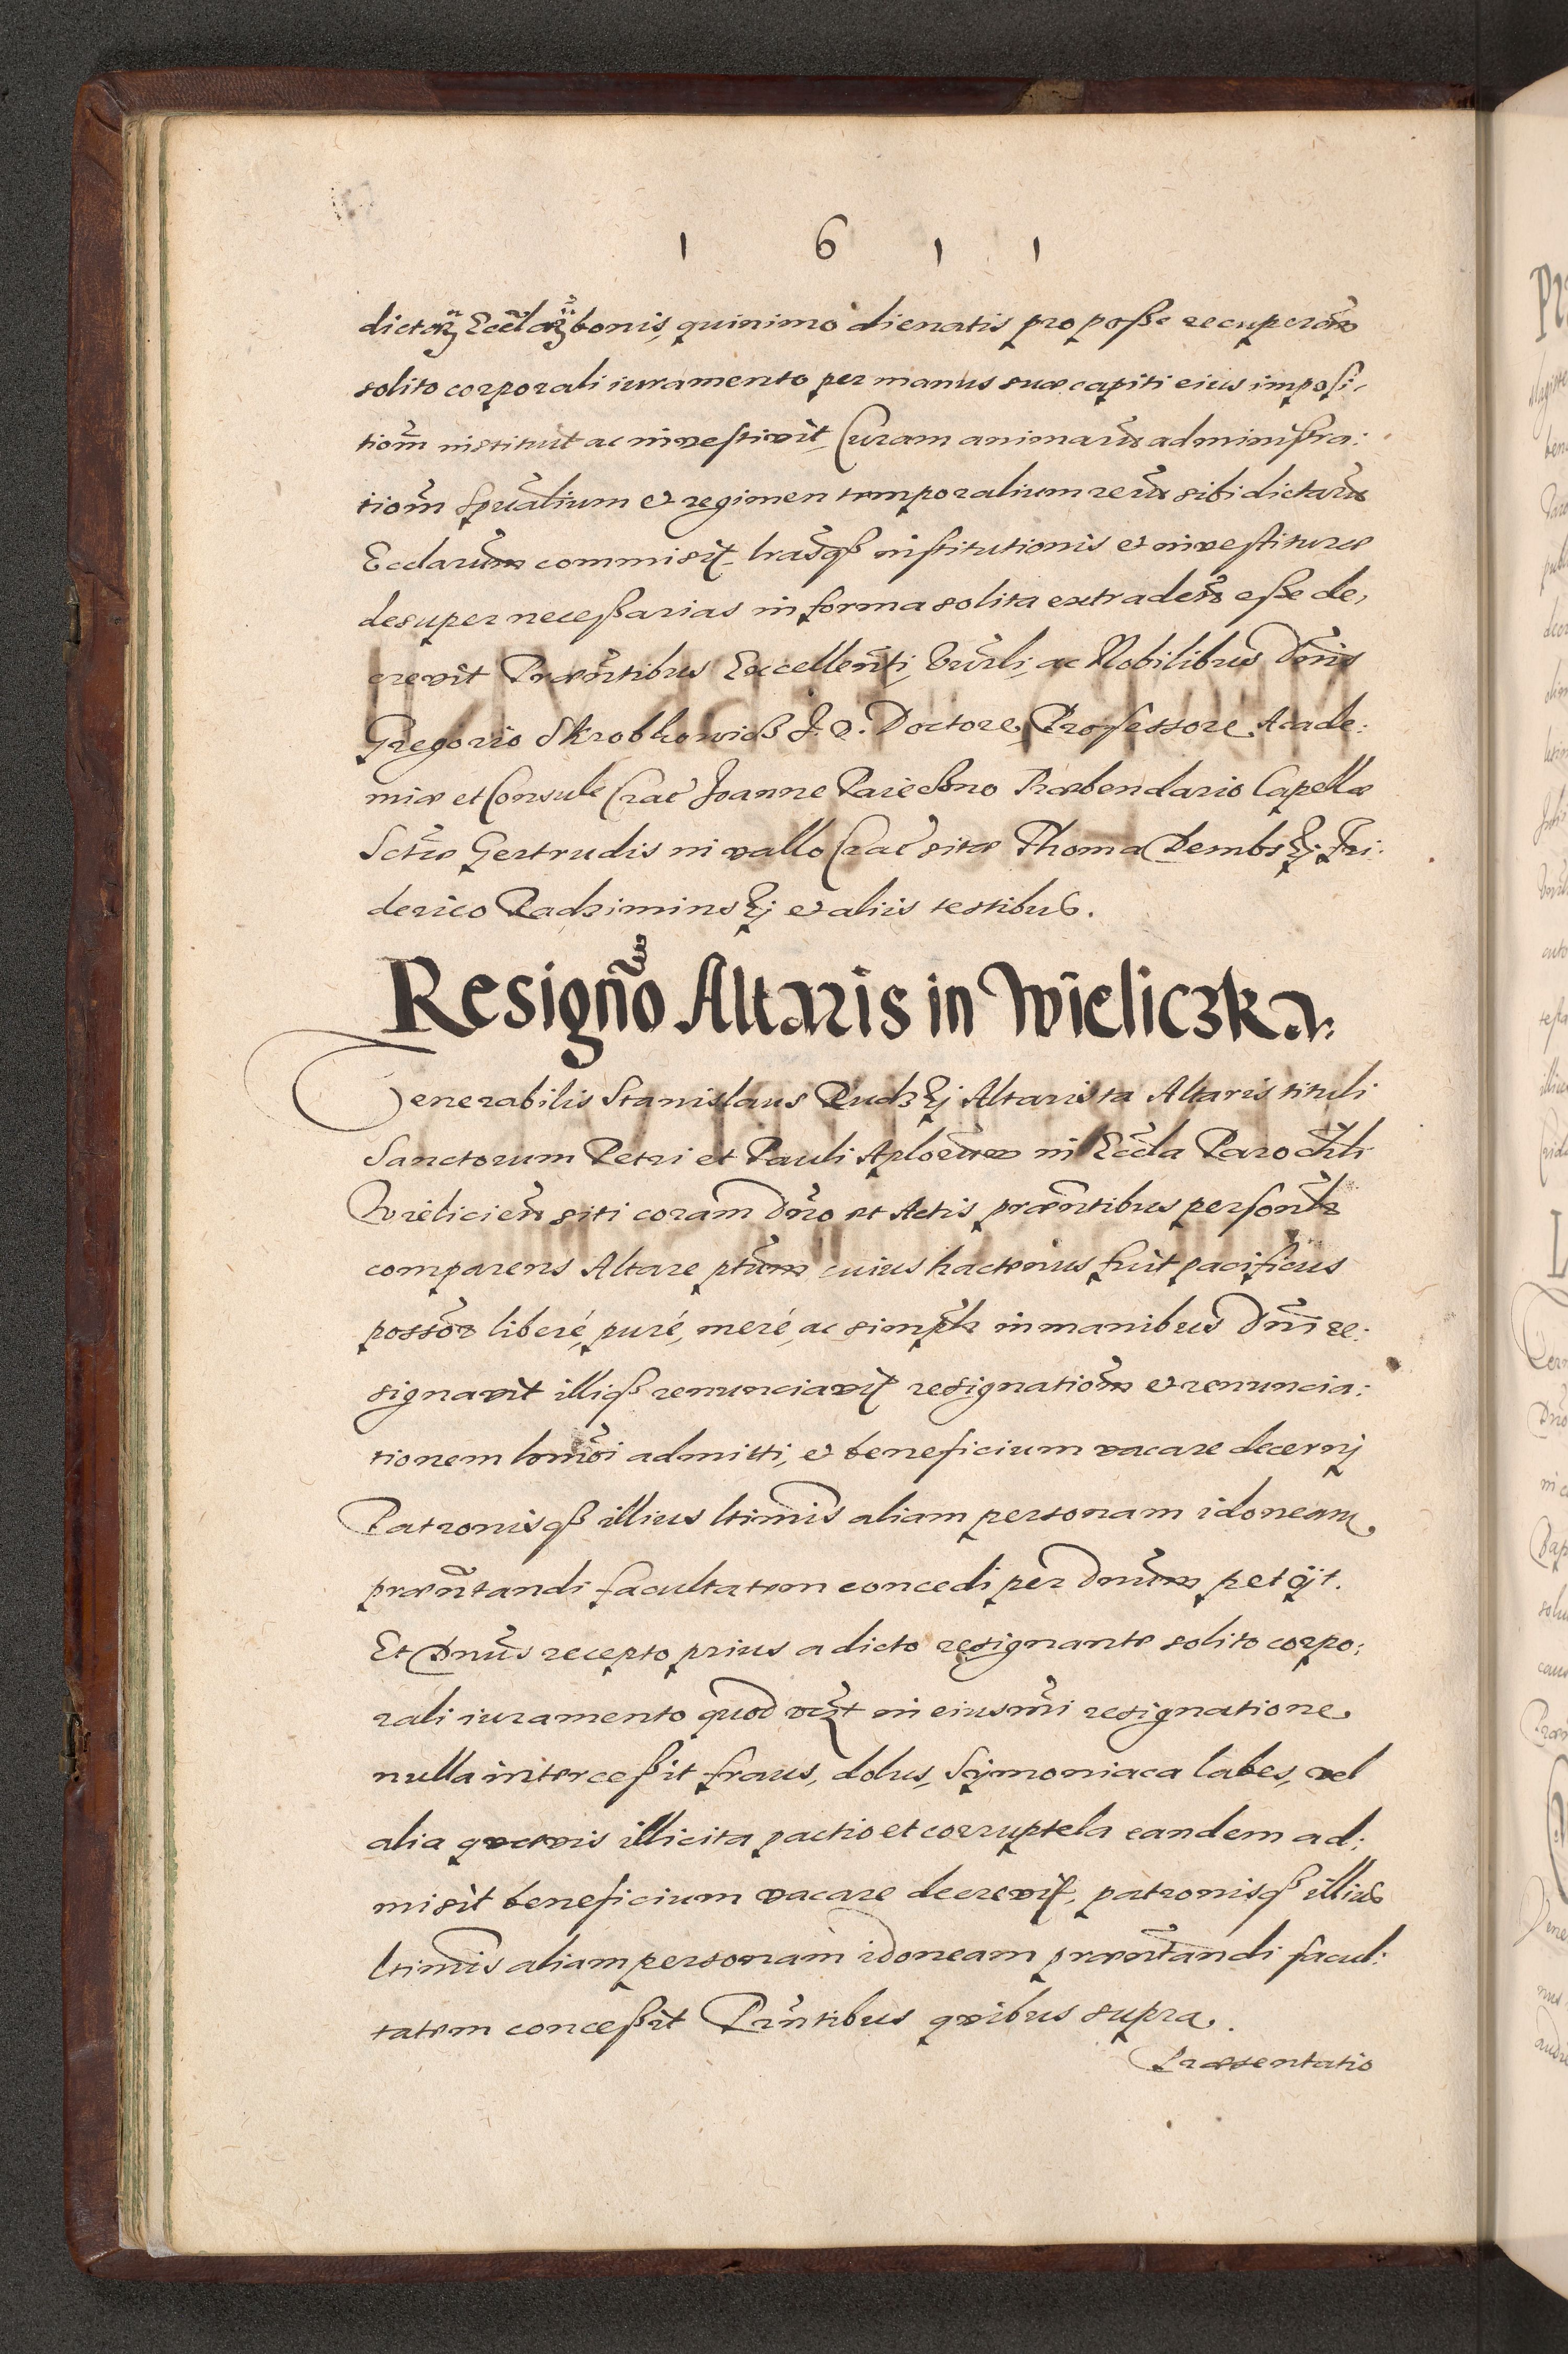 1 6 1 1
dictaꝝ Eccl̃aꝝ bonis, quinimo alienatis pro posse recuperan̄
solito corporali iuramento per manus suæ capiti eius imposi-
tiom̃ instituit ac investivit, Curam animarũ administra:
tiom̃ Spũalium et regimen temporalium rerũ sibi dictarũ
Ecclarum̃ commisit, lrãsqß institutionis et investituræ
desuper necessarias in forma solita extraden̄ esse de,
crevit Præn̄tibus Excellen̄ti, Vurli, ac Nobilibus Dn̄is
Gregorio Skrobkowicß J. V. Doctore, Professore Acade:
miæ et Consule Crac̃ Joanne Præbendario Capellæ
Sctæ̃ Gertrudis in vallo Crac̃ sitæ Thoma Dembskj Fri:
derico Radziminskj et aliis testibus.
Resign̄o Altaris in Wieliczka:
Venerabilis Stanislaus Rudzkj Altarista Altaris tituli
Sanctorum Petri et Pauli Aplorum̃ in Eccl̃a Parochl̃i
Wielicien̄ siti coram Dn̄o et Actis præn̄tibus personl̃r
comparens Altare ptum̃ cuius hactenus fuit pacificus
possor̃ liberé, puré, meré, ac simplr̃ in manibus Dn̄i re:
signavit illiqß renunciavit resignatiom̃ et renuncia:
tionem hm̃oi admitti, et beneficium vacare decernj
Patronisqß illius ltimis̃ aliam personam idoneam
præn̄tandi facultatem concedi per Dnum̃ petijt.
Et Dnus̃ recepto prius a dicto resignante solito corpo:
rali iuramento quod vczt in eiusm̃i resignatione
nulla intercessit fraus, dolus, Sÿmoniaca labes, vel
alia quævis illicita pactio et corruptela eandem ad:
misit beneficium vacare decrevit, patronisqß illius
ltimis̃ aliam personam idoneam præn̄tandi facul:
tatem concessit Prn̄tibus quibus supra.
Præsentatio